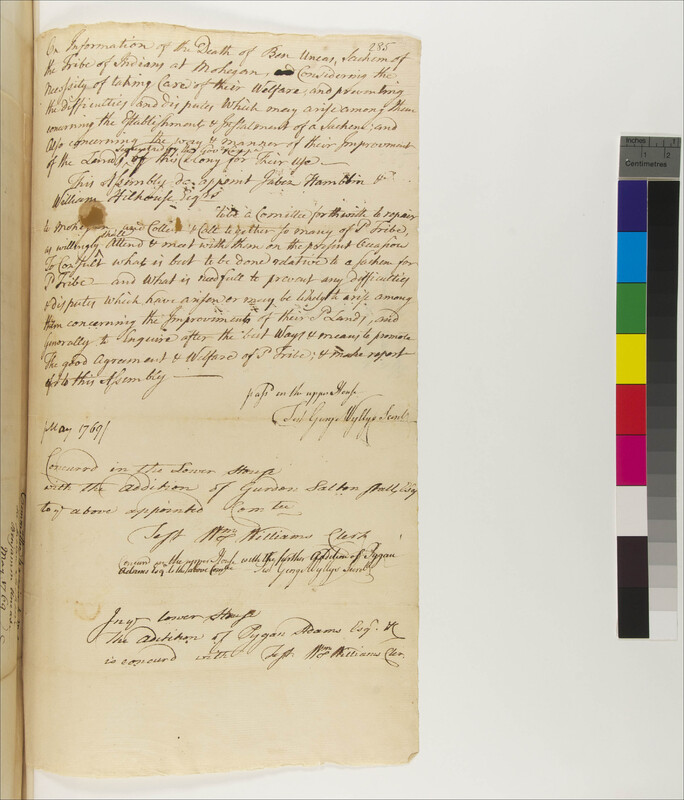 285
On Information of the Death of Ben Uncas, Sachem of
the Tribe of Indians at Mohegan, Considering the
Necessity of taking Care of their Welfare, and preventing
the difficulties and disputes which may arise among them
concerning the Establishment & Instalment of a Sachem; and
Also concerning the way & manner of their Improvement
of the Lands of this Colony for their Use.
This Assembly do appoint Jabez Hamlin &
William Hilhouse Esqrs
be a Comittee forthwith to repair
to Mohegan and Collect & Call together so many of sd Tribe,
as will Attend & meet with them on the present Occasion
To Consult what is best to be done relative to a Sachem for
sd Tribe and what is needfull to prevent any difficulties
& disputes which have arisen or may be likely to arise among
them concerning the Improvements of their sd Lands, and
generally to Enquire after the best Ways & means to promote
the good Agreement & Welfare of sd Tribe; & make report
to this Assembly
Past in the upper House
Test George Wyllys Secret
May 1769
Concurd in the Lower House
with the addition of Gurdon Saltonstall, Esq
to ye above appointed Comtee
Test Wm Williams Clerk
Concurd in the upper House with the further Addition of Pygan
Adams Esq to the above Comtee Test George Wyllys Secret
In ye Lower House
the Addition of Pygan Adams Esqr &c
is concurd with Test Wm Williams Cler.
May 1769